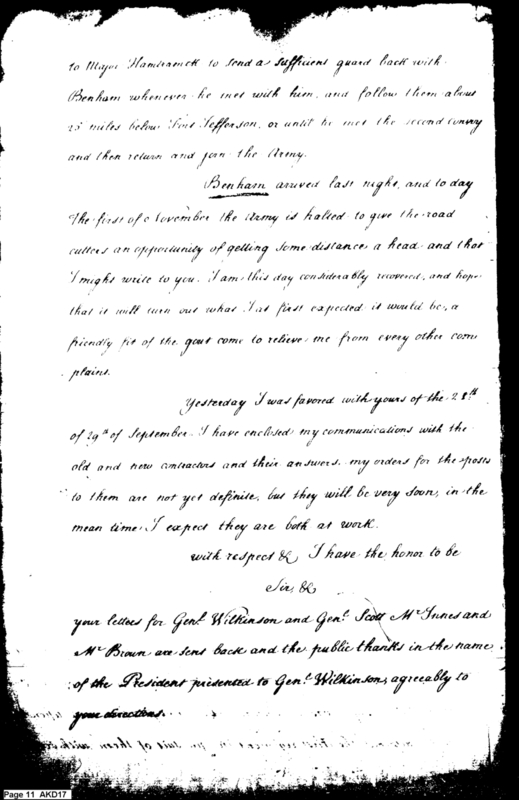 to Major Hamtramck to send a sufficient guard back with
Benham whenever he met with him, and follow them about
25 miles below Fort Jefferson, or until he met the second convoy
and then return and join the Army.
Benham arrived last night, and to day
the first of November the Army is halted to give the road
cutters an opportunity of getting some distance a head and that
I might write to you. I am this day considerably recovered, and hope
that it will turn out what I at first expected it would be, a
friendly fit of the gout come to relieve me from every other com
plaint.
Yesterday I was favored with yours of the 28th
of 29th of September. I have enclosed my communications with the
old and new contractors and their answers. my orders for the posts
to them are not yet definite, but they will be very soon, in the
mean time I expect they are both at work.
with respect & I have the honor to be
Sir, &
your letters for Genl. Wilkinson and Genl. Scott Mr Innes and
Mr Brown are sent back and the public thanks in the name
of the President presented to Genl. Wilkinson, agreeably to
your directions.
Page 11 AKD17